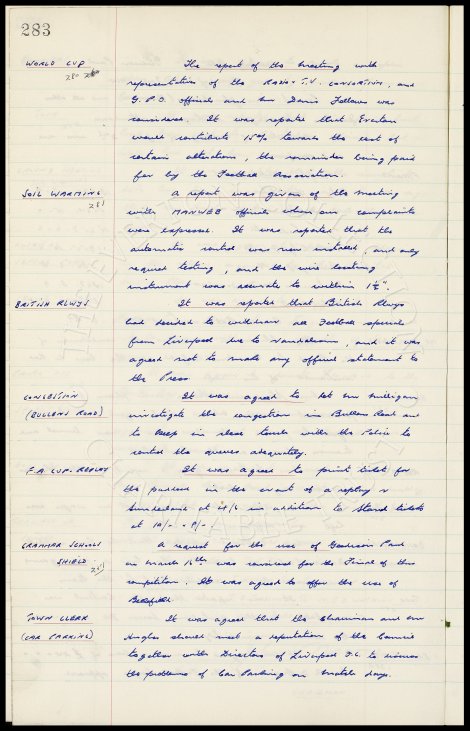 283
WORLD CUP
280
The report of the meeting with
representatives of the RADIO & T.V. CONSORTIUM, and
G.P.O. officials and Sir Denis Follows was
considered. It was reported that Everton
would contribute 15% towards the cost of
certain alterations, the remainder being paid
for by the Football Association.
SOIL WARMING
281
A report was given of the meeting
with MANWEB officials when our complaints
were expressed. It was reported that the
automatic control was now installed, and only
required testing, and the wire locating
instrument was accurate to within 1½".
BRITISH RLWYS
It was reported that British Rlwys
had decided to withdraw all Football specials
from Liverpool due to vandalism, and it was
agreed not to make any official statement to
the Press.
CONGESTION
(BULLENS ROAD)
It was agreed to let Mr Milligan
investigate the congestion in Bullens Road and
to keep in close touch with the Police to
control the queues adequately.
F.A. CUP. REPLAY
It was agreed to print tickets for
the paddock in the event of a replay v
Sunderland at in addition to Stand tickets
at 10/- - 8/-.
GRAMMAR SCHOOLS
SHIELD
A request for the use of Goodison Park
on March 16th was received for the Final of this
competition. It was agreed to offer the use of
Bellefield.
TOWN CLERK
(CAR PARKING)
It was agreed that the Chairman and Mr
Hughes should meet a deputation of the Council
together with Directors of Liverpool F.C. to discuss
the problems of Car Parking on match days.